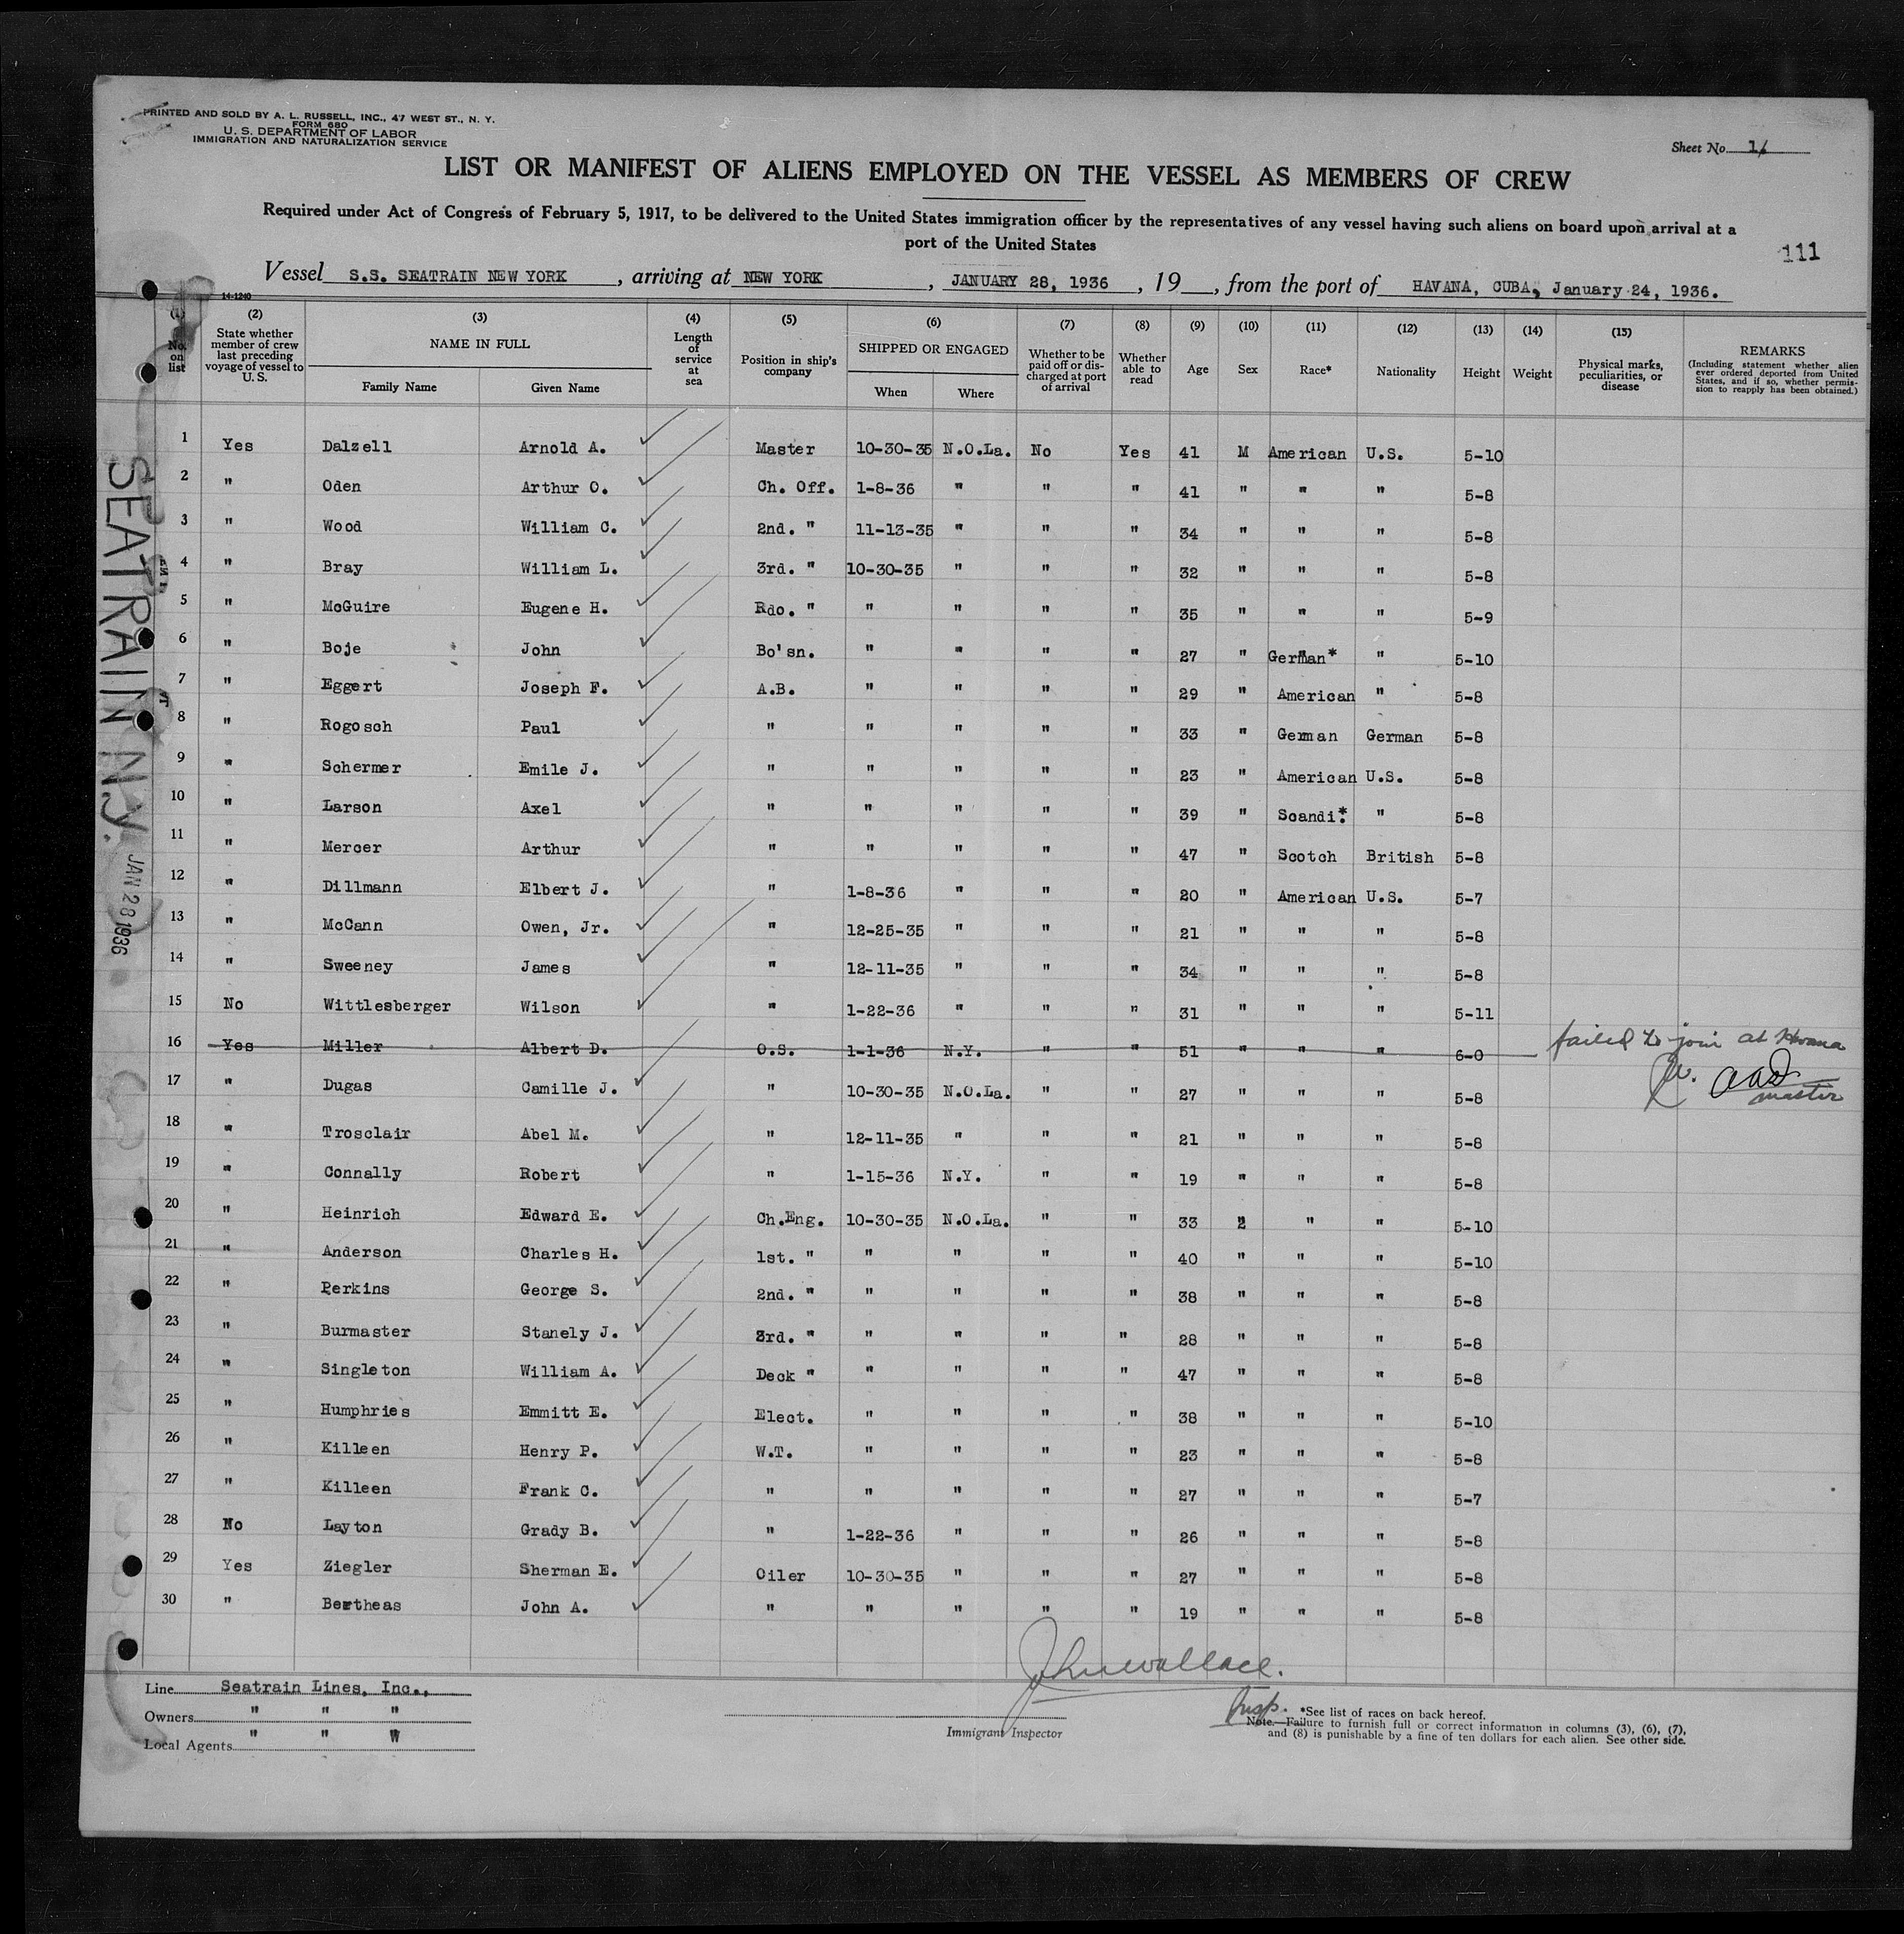 PRINTED AND SOLD BY A. L. RUSSELL, INC., 47 WEST ST., N. Y.
FORM 680
U. S. DEPARTMENT OF LABOR
IMMIGRATION AND NATURALIZATION SERVICE
Sheet No. 1
LIST OR MANIFEST OF ALIENS EMPLOYED ON THE VESSEL AS MEMBERS OF CREW
Required under Act of Congress of February 5, 1917, to be delivered to the United States immigration officer by the representatives of any vessel having such aliens on board upon arrival at a
port of the United States
111
Vessel S.S. SEATRAIN NEW YORK, arriving at NEW YORK, JANUARY 28, 1936, 19, from the port of HAVANA, CUBA, January 24, 1936.
14-1240
(1) No. on list (2) State whether member of crew last preceding voyage of vessel to U. S. (3) NAME IN FULL Family Name Given Name (4) Length of service at sea (5) Position in ship's company (6) SHIPPED OR ENGAGED When Where (7) Whether to be paid off or discharged at port of arrival (8) Whether able to read (9) Age (10) Sex (11) Race* (12) Nationality (13) Height (14) Weight (15) Physical marks, peculiarities, or disease REMARKS (Including statement whether alien ever ordered deported from United States, and if so, whether permission to reapply has been obtained.)
1 Yes Dalzell Arnold A. Master 10-30-35 N.O.La. No Yes 41 M American U.S. 5-10
2 " Oden Arthur O. Ch. Off. 1-8-36 " " " 41 " " " 5-8
3 " Wood William C. 2nd. " 11-13-35 " " " 34 " " " 5-8
4 " Bray William L. 3rd. " 10-30-35 " " " 32 " " " 5-8
5 " McGuire Eugene H. Rdo. " " " " " 35 " " " 5-9
6 " Boje John Bo'sn. " " " " 27 " German* " 5-10
7 " Eggert Joseph F. A.B. " " " " 29 " American " 5-8
8 " Rogosch Paul " " " " " 33 " German German 5-8
9 " Schermer Emile J. " " " " " 23 " American U.S. 5-8
10 " Larson Axel " " " " " 39 " Scandi.* " 5-8
11 " Mercer Arthur " " " " " 47 " Scotch British 5-8
12 " Dillmann Elbert J. " 1-8-36 " " " 20 " American U.S. 5-7
13 " McCann Owen, Jr. " 12-25-35 " " " 21 " " " 5-8
14 " Sweeney James " 12-11-35 " " " 34 " " " 5-8
15 No Wittlesberger Wilson " 1-22-36 " " " 31 " " " 5-11
16 Yes Miller Albert D. O.S. 1-1-36 N.Y. " " 51 " " " 6-0 failed to join at Havana
aad
master
17 " Dugas Camille J. " 10-30-35 N.O.La. " " 27 " " " 5-8
18 " Trosclair Abel M. " 12-11-35 " " " 21 " " " 5-8
19 " Connally Robert " 1-15-36 N.Y. " " 19 " " " 5-8
20 " Heinrich Edward E. Ch.Eng. 10-30-35 N.O.La. " " 33 " " " 5-10
21 " Anderson Charles H. 1st. " " " " " 40 " " " 5-10
22 " Perkins George S. 2nd. " " " " " 38 " " " 5-8
23 " Burmaster Stanely J. 3rd. " " " " " 28 " " " 5-8
24 " Singleton William A. Deck " " " " " 47 " " " 5-8
25 " Humphries Emmitt E. Elect. " " " " 38 " " " 5-10
26 " Killeen Henry P. W.T. " " " " 23 " " " 5-8
27 " Killeen Frank C. " " " " " 27 " " " 5-7
28 No Layton Grady B. " 1-22-36 " " " 26 " " " 5-8
29 Yes Ziegler Sherman E. Oiler 10-30-35 " " " 27 " " " 5-8
30 " Bertheas John A. " " " " " 19 " " " 5-8
SEATRAIN N.Y.
JAN 28 1936
John Wallace.
Insp.
Line Seatrain Lines, Inc.,
Owners " " "
Local Agents " " W
Immigrant Inspector
*See list of races on back hereof.
Note.—Failure to furnish full or correct information in columns (3), (6), (7),
and (8) is punishable by a fine of ten dollars for each alien. See other side.